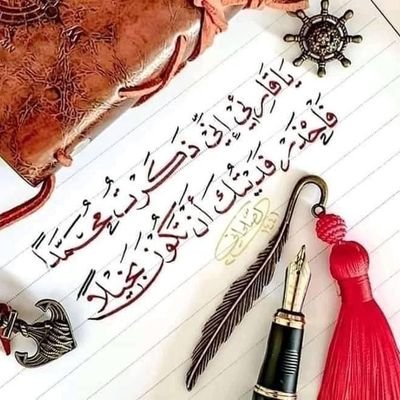 يَا قَارِئِي إِنِّي ذَكَرْتُ مُحَمَّداً
فَاحْذَرْ فَدَيْتُكَ أَنْ تَكُوْنَ بَخِيْلاً
١٤٤١